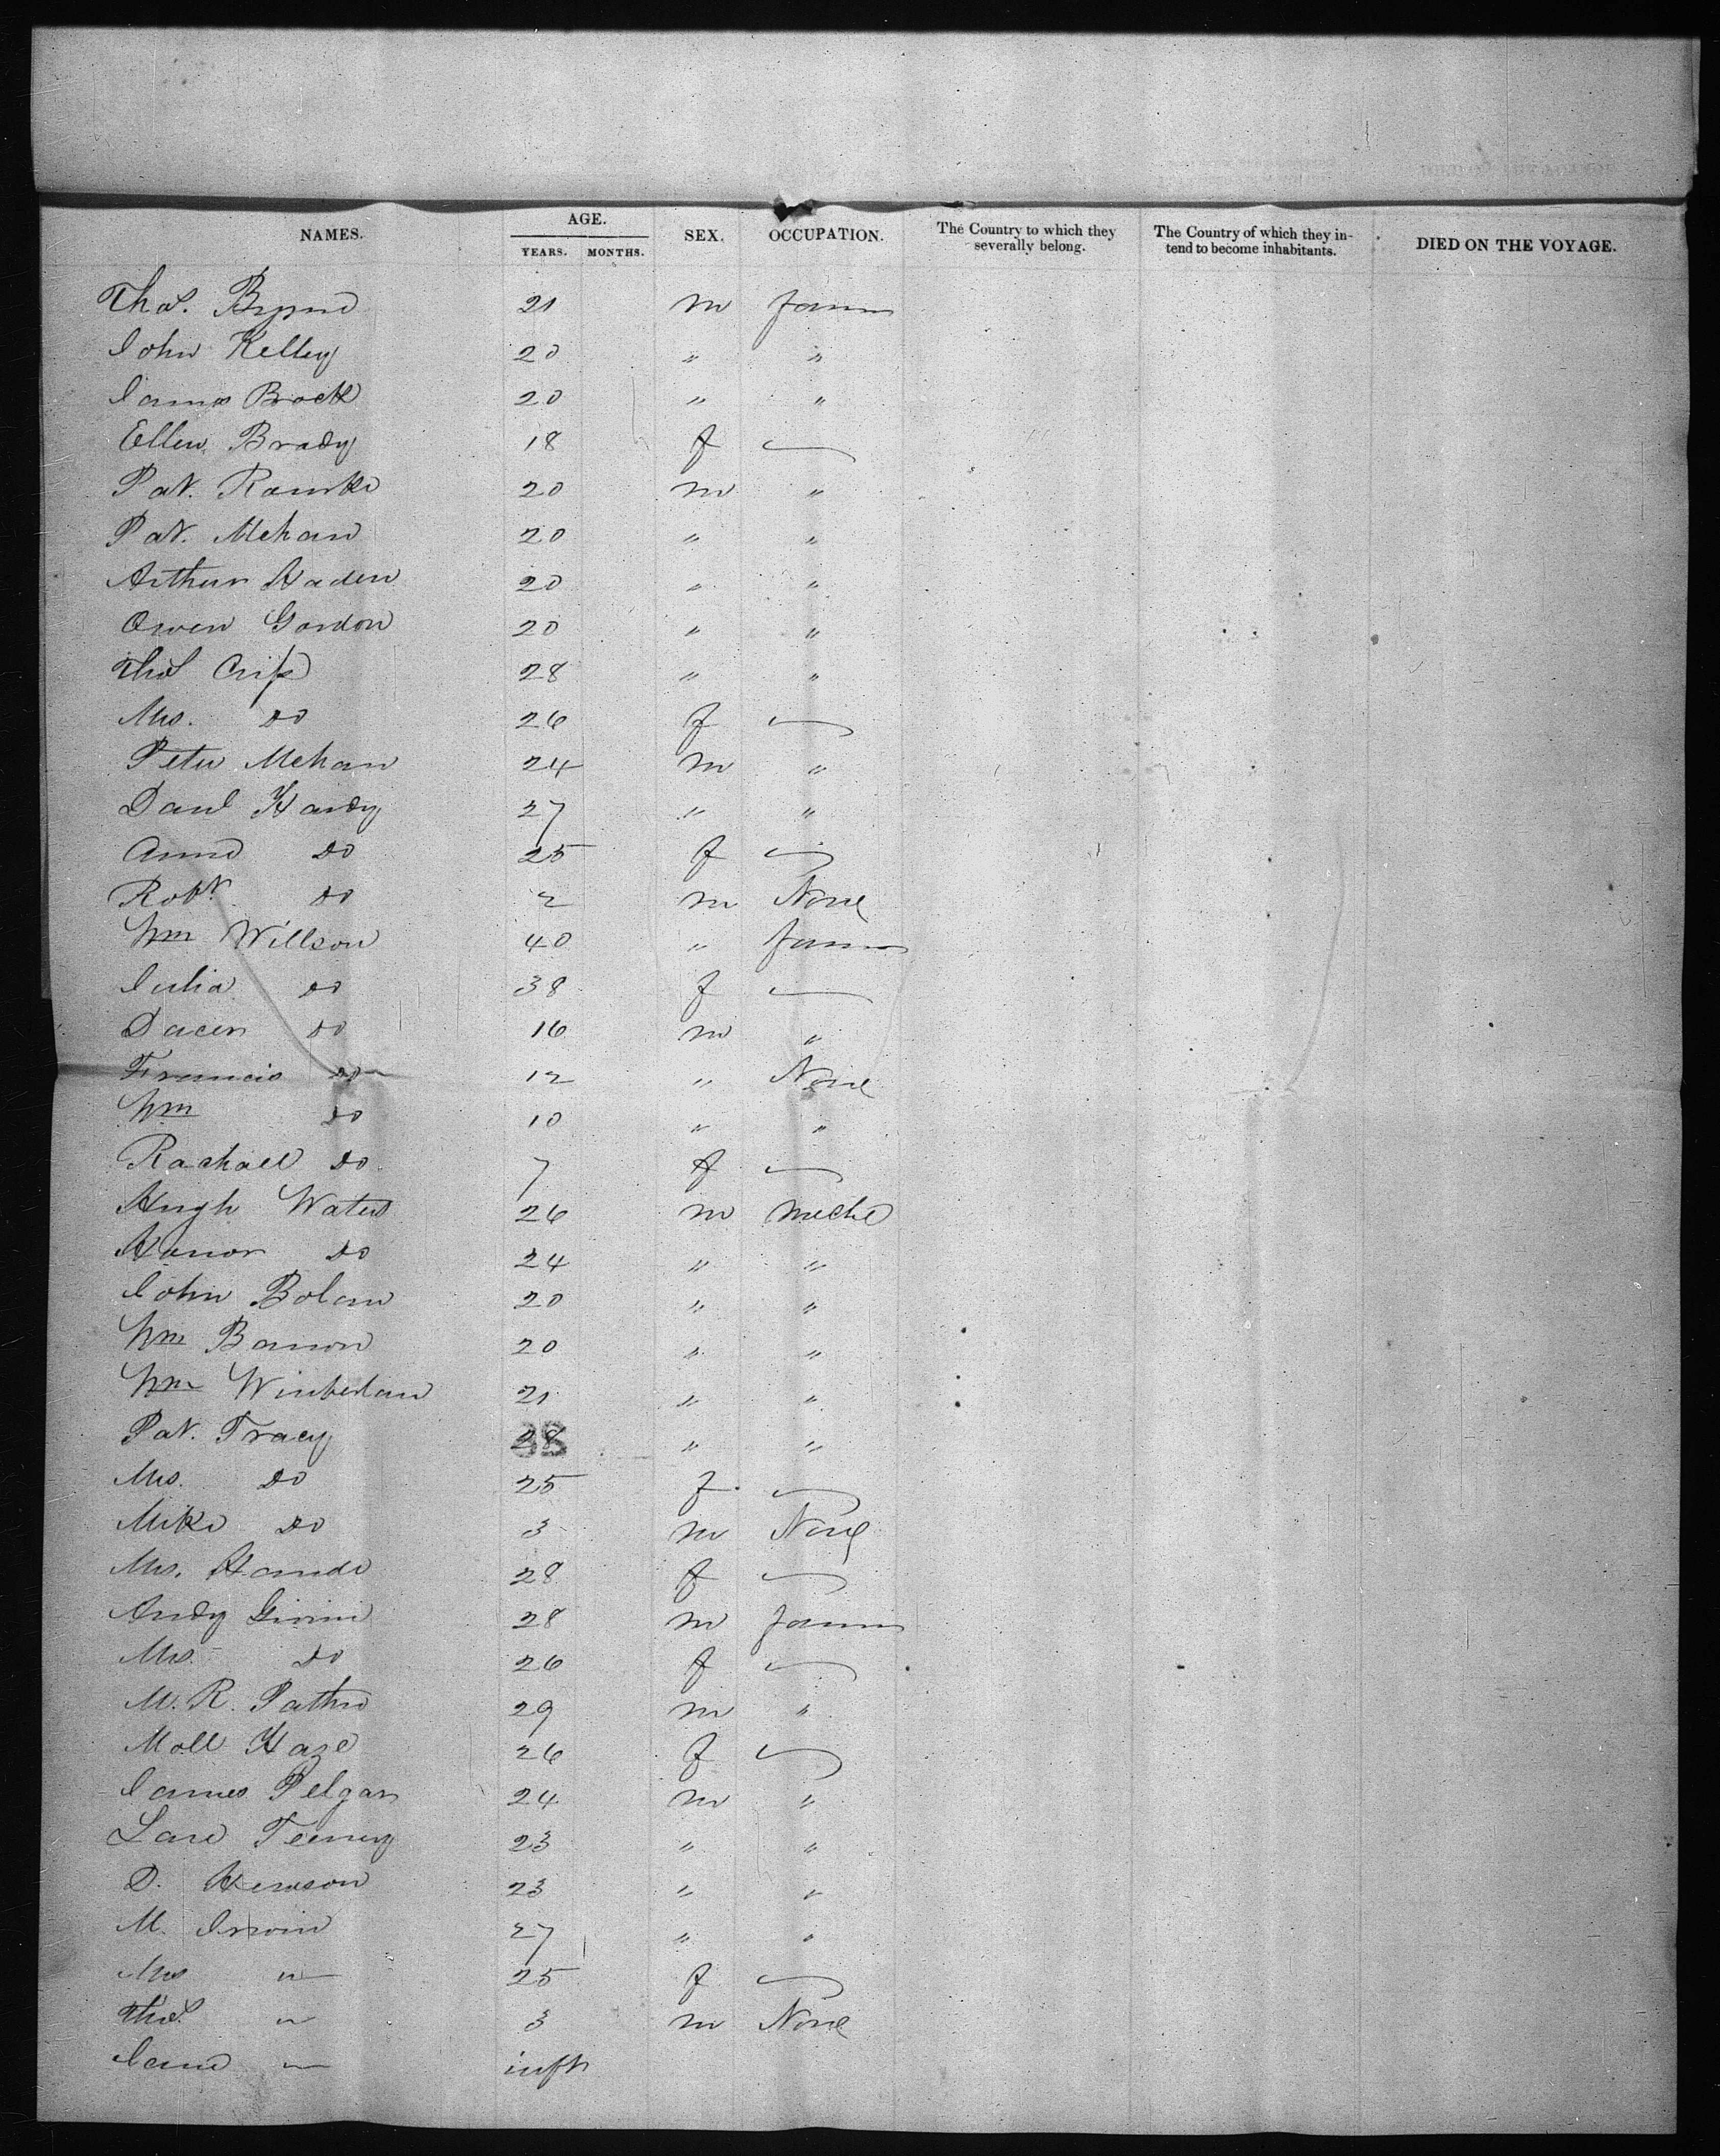 NAMES. AGE. YEARS. MONTHS. SEX. OCCUPATION. The Country to which they severally belong. The Country of which they intend to become inhabitants. DIED ON THE VOYAGE.
Thos. Byrne 21 m farmer
John Kelley 20 " "
James Brock 20 " "
Ellen Brady 18 f —
Pat. Rourke 20 m "
Pat. Mehan 20 " "
Arthur Haden 20 " "
Owen Gordon 20 " "
Thos Crisp 28 " "
Mrs. Do 26 f —
Peter Mehan 24 m "
Danl Hardy 27 " "
Anne Do 25 f —
Robt. Do 2 m None
Wm Willson 40 " farmer
Julia Do 38 f —
Do 16 m "
Francis Do 12 " None
Wm Do 10 " "
Rachael Do 7 f —
Hugh Waters 26 m Meche
Honor Do 24 " "
John Bolan 20 " "
Wm Banon 20 " "
Wm Winberlan 21 " "
Pat. Tracy 28 " "
Mrs. Do 25 f —
Mike Do 3 m None
Mrs. 28 f —
Andy 28 m farmer
Mrs. Do 26 f —
M. R. 29 m "
Moll Haze 26 f —
James Pelgan 24 m "
Lare Teeney 23 " "
D. Hewson 23 " "
M. Irwin 27 " "
Mrs " 25 f —
Thos. " 3 m None
Jane " inft